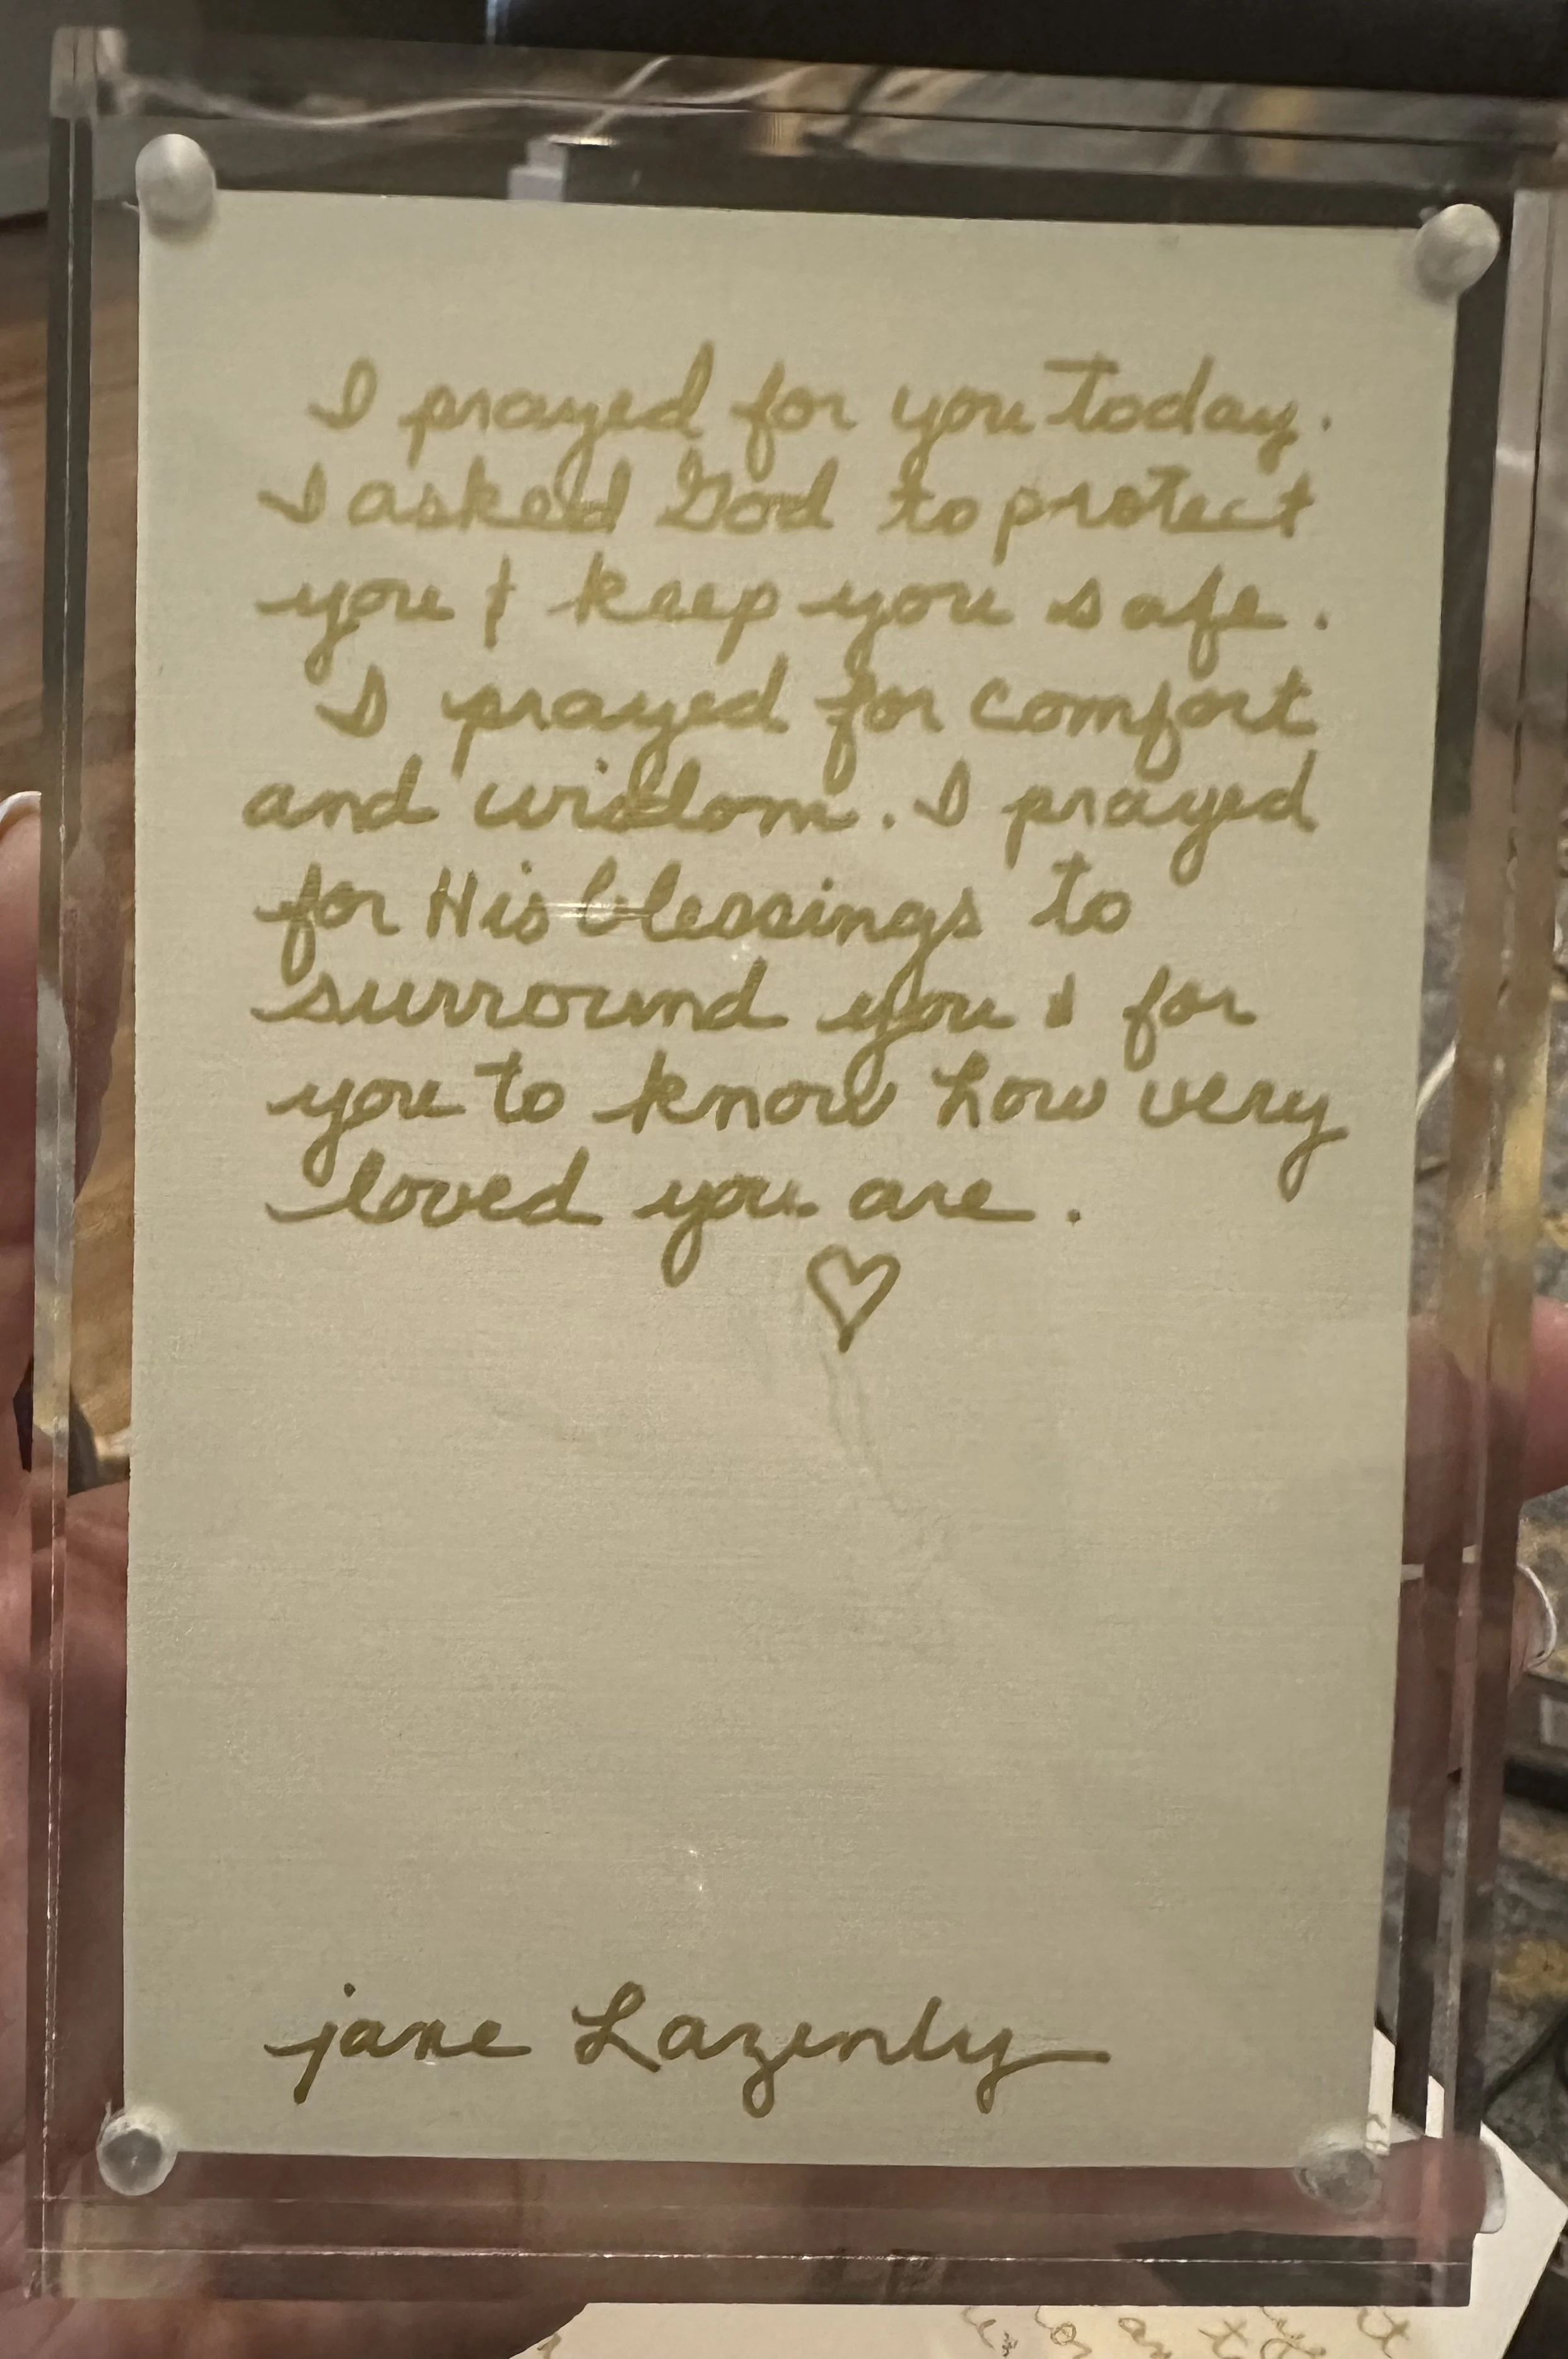 I prayed for you today.
I asked God to protect
you & keep you safe.
I prayed for comfort
and wisdom. I prayed
for His blessings to
surround you & for
you to know how very
loved you are.
jane Lazenly